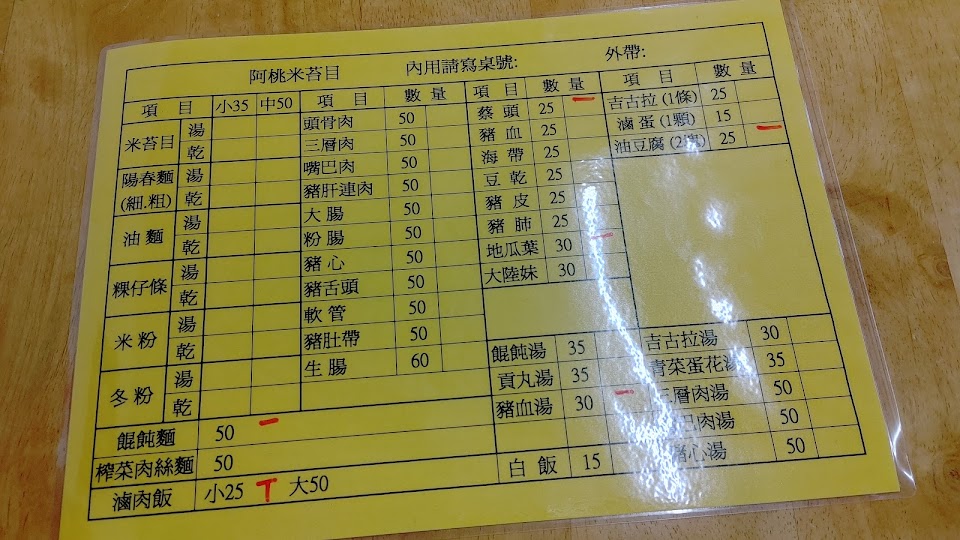 阿桃米苔目 內用請寫桌號: 外帶:
項 目 小35 中50
米苔目 湯
乾
陽春麵 (細.粗) 湯
乾
油麵 湯
乾
粿仔條 湯
乾
米粉 湯
乾
冬粉 湯
乾
餛飩麵 50
榨菜肉絲麵 50
滷肉飯 小25 大50
項 目 數 量
頭骨肉 50
三層肉 50
嘴巴肉 50
豬肝連肉 50
大腸 50
粉腸 50
豬心 50
豬舌頭 50
軟管 50
豬肚帶 50
生腸 60
項 目 數 量
蔡頭 25
豬血 25
海帶 25
豆乾 25
豬皮 25
豬肺 25
地瓜葉 30
大陸妹 30
餛飩湯 35
貢丸湯 35
豬血湯 30
白飯 15
項 目 數 量
吉古拉 (1條) 25
滷蛋 (1顆) 15
油豆腐 (2塊) 25
吉古拉湯 30
青菜蛋花湯 35
三層肉湯 50
巴肉湯 50
豬心湯 50